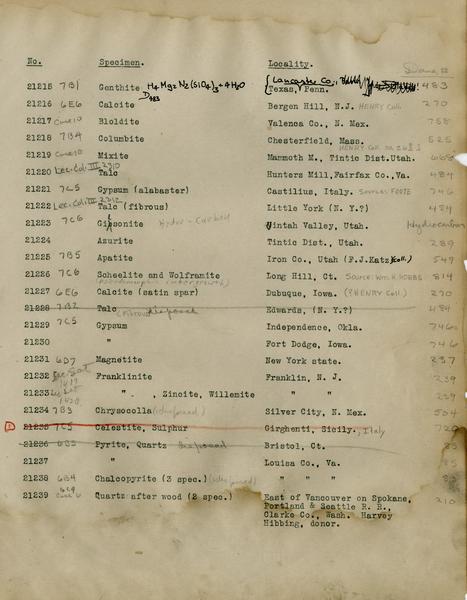 No. Specimen. Locality. Dana #
21215 7B1 Genthite H4Mg2N2(SiO4)3+4H2O D483 {Lancaster Co., Texas, Penn. 483
21216 6E6 Calcite Bergen Hill, N.J. HENRY Coll. 270
21217 Bloldite Valenca Co., N. Mex. 758
21218 7B4 Columbite Chesterfield, Mass. 525
21219 Mixite HENRY Coll. Mammoth M., Tintic Dist.Utah. 668
21220 Lec. Col. III Talc Hunters Mill,Fairfax Co.,Va. 484
21221 7C5 Gypsum (alabaster) Castilius, Italy. Source: FOOTE 746
21222 Lec. Col. III 2312 Talc (fibrous) Little York (N. Y.?) 484
21223 7C6 Gilsonite Hydro-Carbon Uintah Valley, Utah. Hydrocarbon
21224 Azurite Tintic Dist., Utah. 289
21225 7B5 Apatite Iron Co., Utah (F.J.Katz Coll.) 549
21226 7C6 Scheelite and Wolframite Long Hill, Ct. Source: Wm. H. HOBBS 814
21227 6E6 Calcite (satin spar) Dubuque, Iowa. (?HENRY Coll.) 270
21228 7B2 Talc (Fibrous) disposed Edwards, (N. Y.?) 484
21229 7C5 Gypsum Independence, Okla. 746
21230 " Fort Dodge, Iowa. 746
21231 6D7 Magnetite New York state. 237
21232 Lec. Set 1417 Franklinite Franklin, N. J. 239
21233 Lec. Set 1420 " , Zincite, Willemite " " 239
21234 7B3 Chrysocolla (disposed) Silver City, N. Mex. 504
D 21235 7C5 Celestite, Sulphur Girghenti, Sicily., Italy 720
21236 6B3 Pyrite, Quartz disposed Bristol, Ct. 85
21237 " Louisa Co., Va. 85
21238 6B4 Chalcopyrite (3 spec.) (disposed) " " "
21239 6C9 Quartz after wood (2 spec.) East of Vancouver on Spokane, 210
Portland & Seattle R. R.,
Clarke Co., Wash. Harvey
Hibbing, donor.